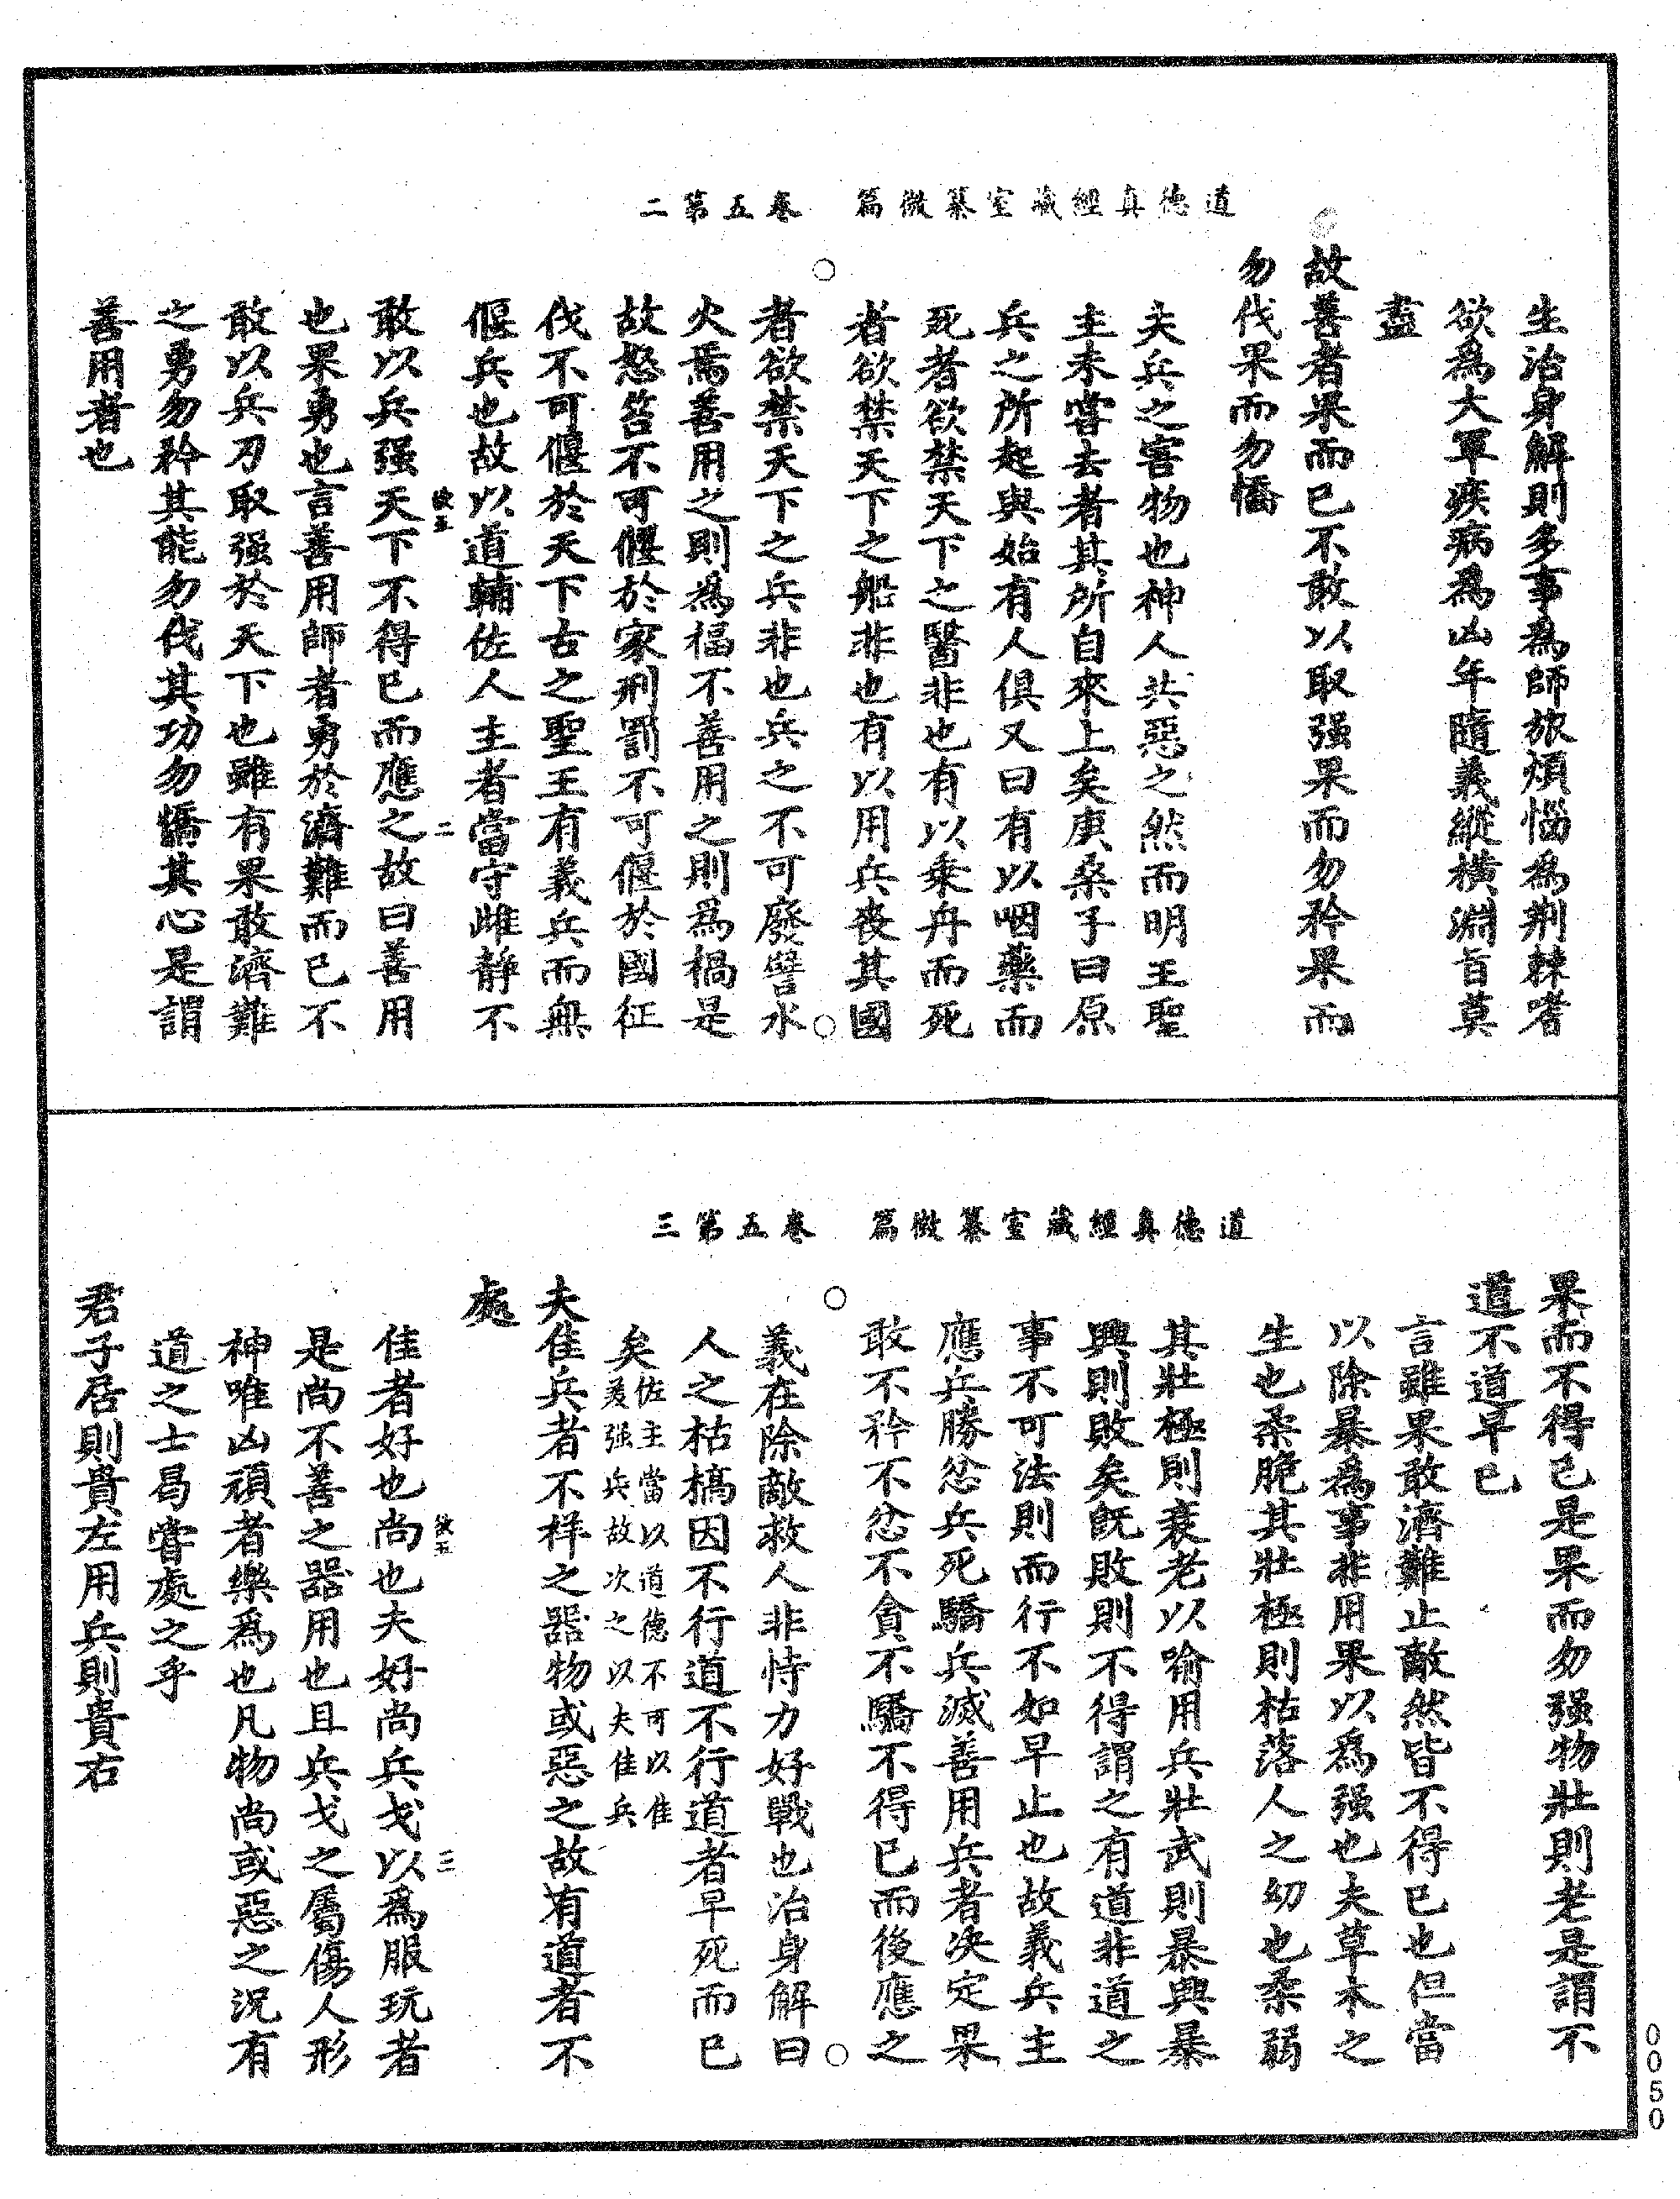 道德真經藏室纂微篇　卷五第二
生治身解則多事為師旅煩惱為荆棘嗜
欲為大軍疾病為凶年隨義縱橫淵旨莫
盡
故善者果而已不敢以取强果而勿矜果而
勿伐果而勿憍
夫兵之害物也神人共惡之然而明王聖
主未嘗去者其所自來上矣庚桑子曰原
兵之所起與始有人俱又曰有以咽藥而
死者欲禁天下之醫非也有以乘舟而死
者欲禁天下之船非也有以用兵喪其國
者欲禁天下之兵非也兵之不可廢譬水
火焉善用之則為福不善用之則為禍是
故怒笞不可偃於家刑罰不可偃於國征
伐不可偃於天下古之聖王有義兵而無
偃兵也故以道輔佐人主者當守雌靜不
欲五　二
敢以兵强天下不得已而應之故曰善用
也果勇也言善用師者勇於濟難而已不
敢以兵刃取强於天下也雖有果敢濟難
之勇勿矜其能勿伐其功勿憍其心是謂
善用者也
道德真經藏室纂微篇　卷五第三
果而不得已是果而勿强物壯則老是謂不
道不道早已
言雖果敢濟難止敵然皆不得已也但當
以除暴為事非用果以為强也夫草木之
生也柔脆其壯極則枯落人之幼也柔弱
其壯極則衰老以喻用兵壯武則暴興暴
興則敗矣既敗則不得謂之有道非道之
事不可法則而行不如早止也故義兵主
應兵勝忿兵死驕兵滅善用兵者決定果
敢不矜不忿不貪不驕不得已而後應之
義在除敵救人非恃力好戰也治身解曰
人之枯槁因不行道不行道者早死而已
矣佐主當以道德不可以隹
㕛强兵故次之以夫佳兵
夫佳兵者不祥之器物或惡之故有道者不
處
欲五　三
佳者好也尚也夫好尚兵戈以為服玩者
是尚不善之器用也且兵戈之屬傷人形
神唯凶頑者樂為也凡物尚或惡之況有
道之士曷嘗處之乎
君子居則貴左用兵則貴右
0050